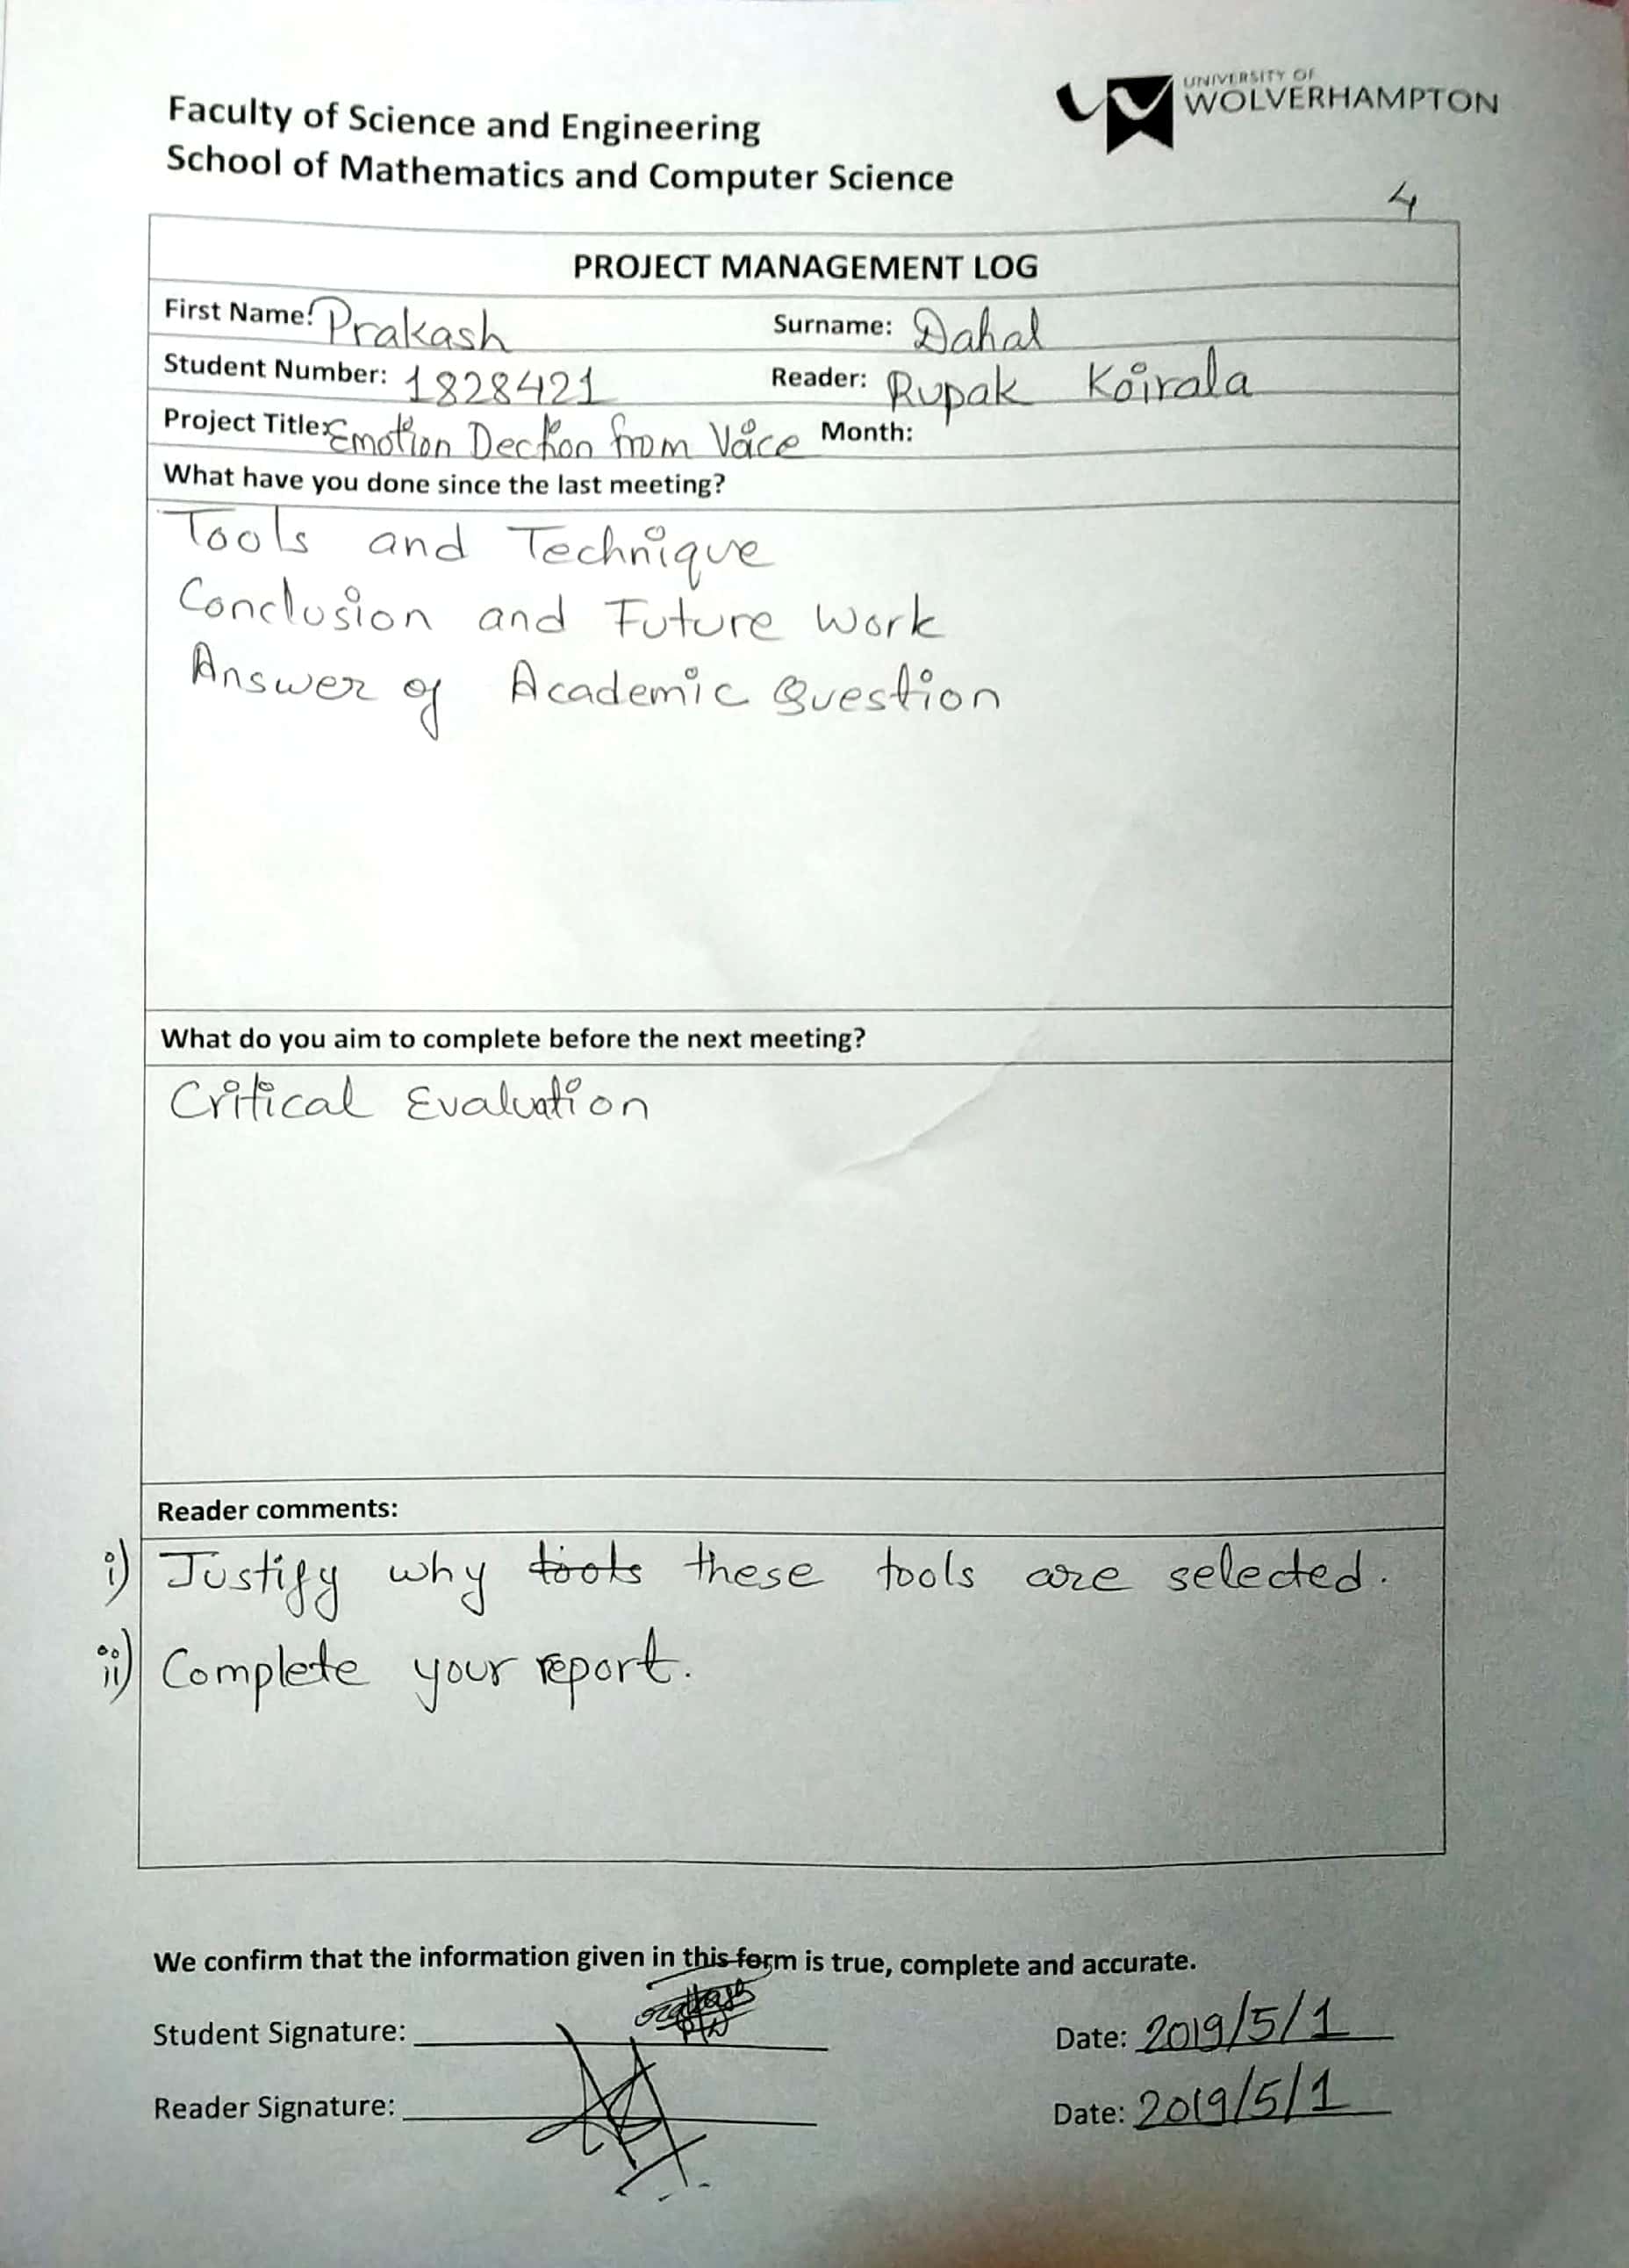 UNIVERSITY OF
WOLVERHAMPTON
Faculty of Science and Engineering
School of Mathematics and Computer Science
4
PROJECT MANAGEMENT LOG
First Name: Prakash Surname: Dahal
Student Number: 1828421 Reader: Rupak Koirala
Project Title: Emotion Dection from Voice Month:
What have you done since the last meeting?
Tools and Technique
Conclusion and Future Work
Answer of Academic Question
What do you aim to complete before the next meeting?
Critical Evaluation
Reader comments:
i) Justify why tools these tools are selected.
ii) Complete your report.
We confirm that the information given in this form is true, complete and accurate.
Student Signature: Date: 2019/5/1
Reader Signature: Date: 2019/5/1